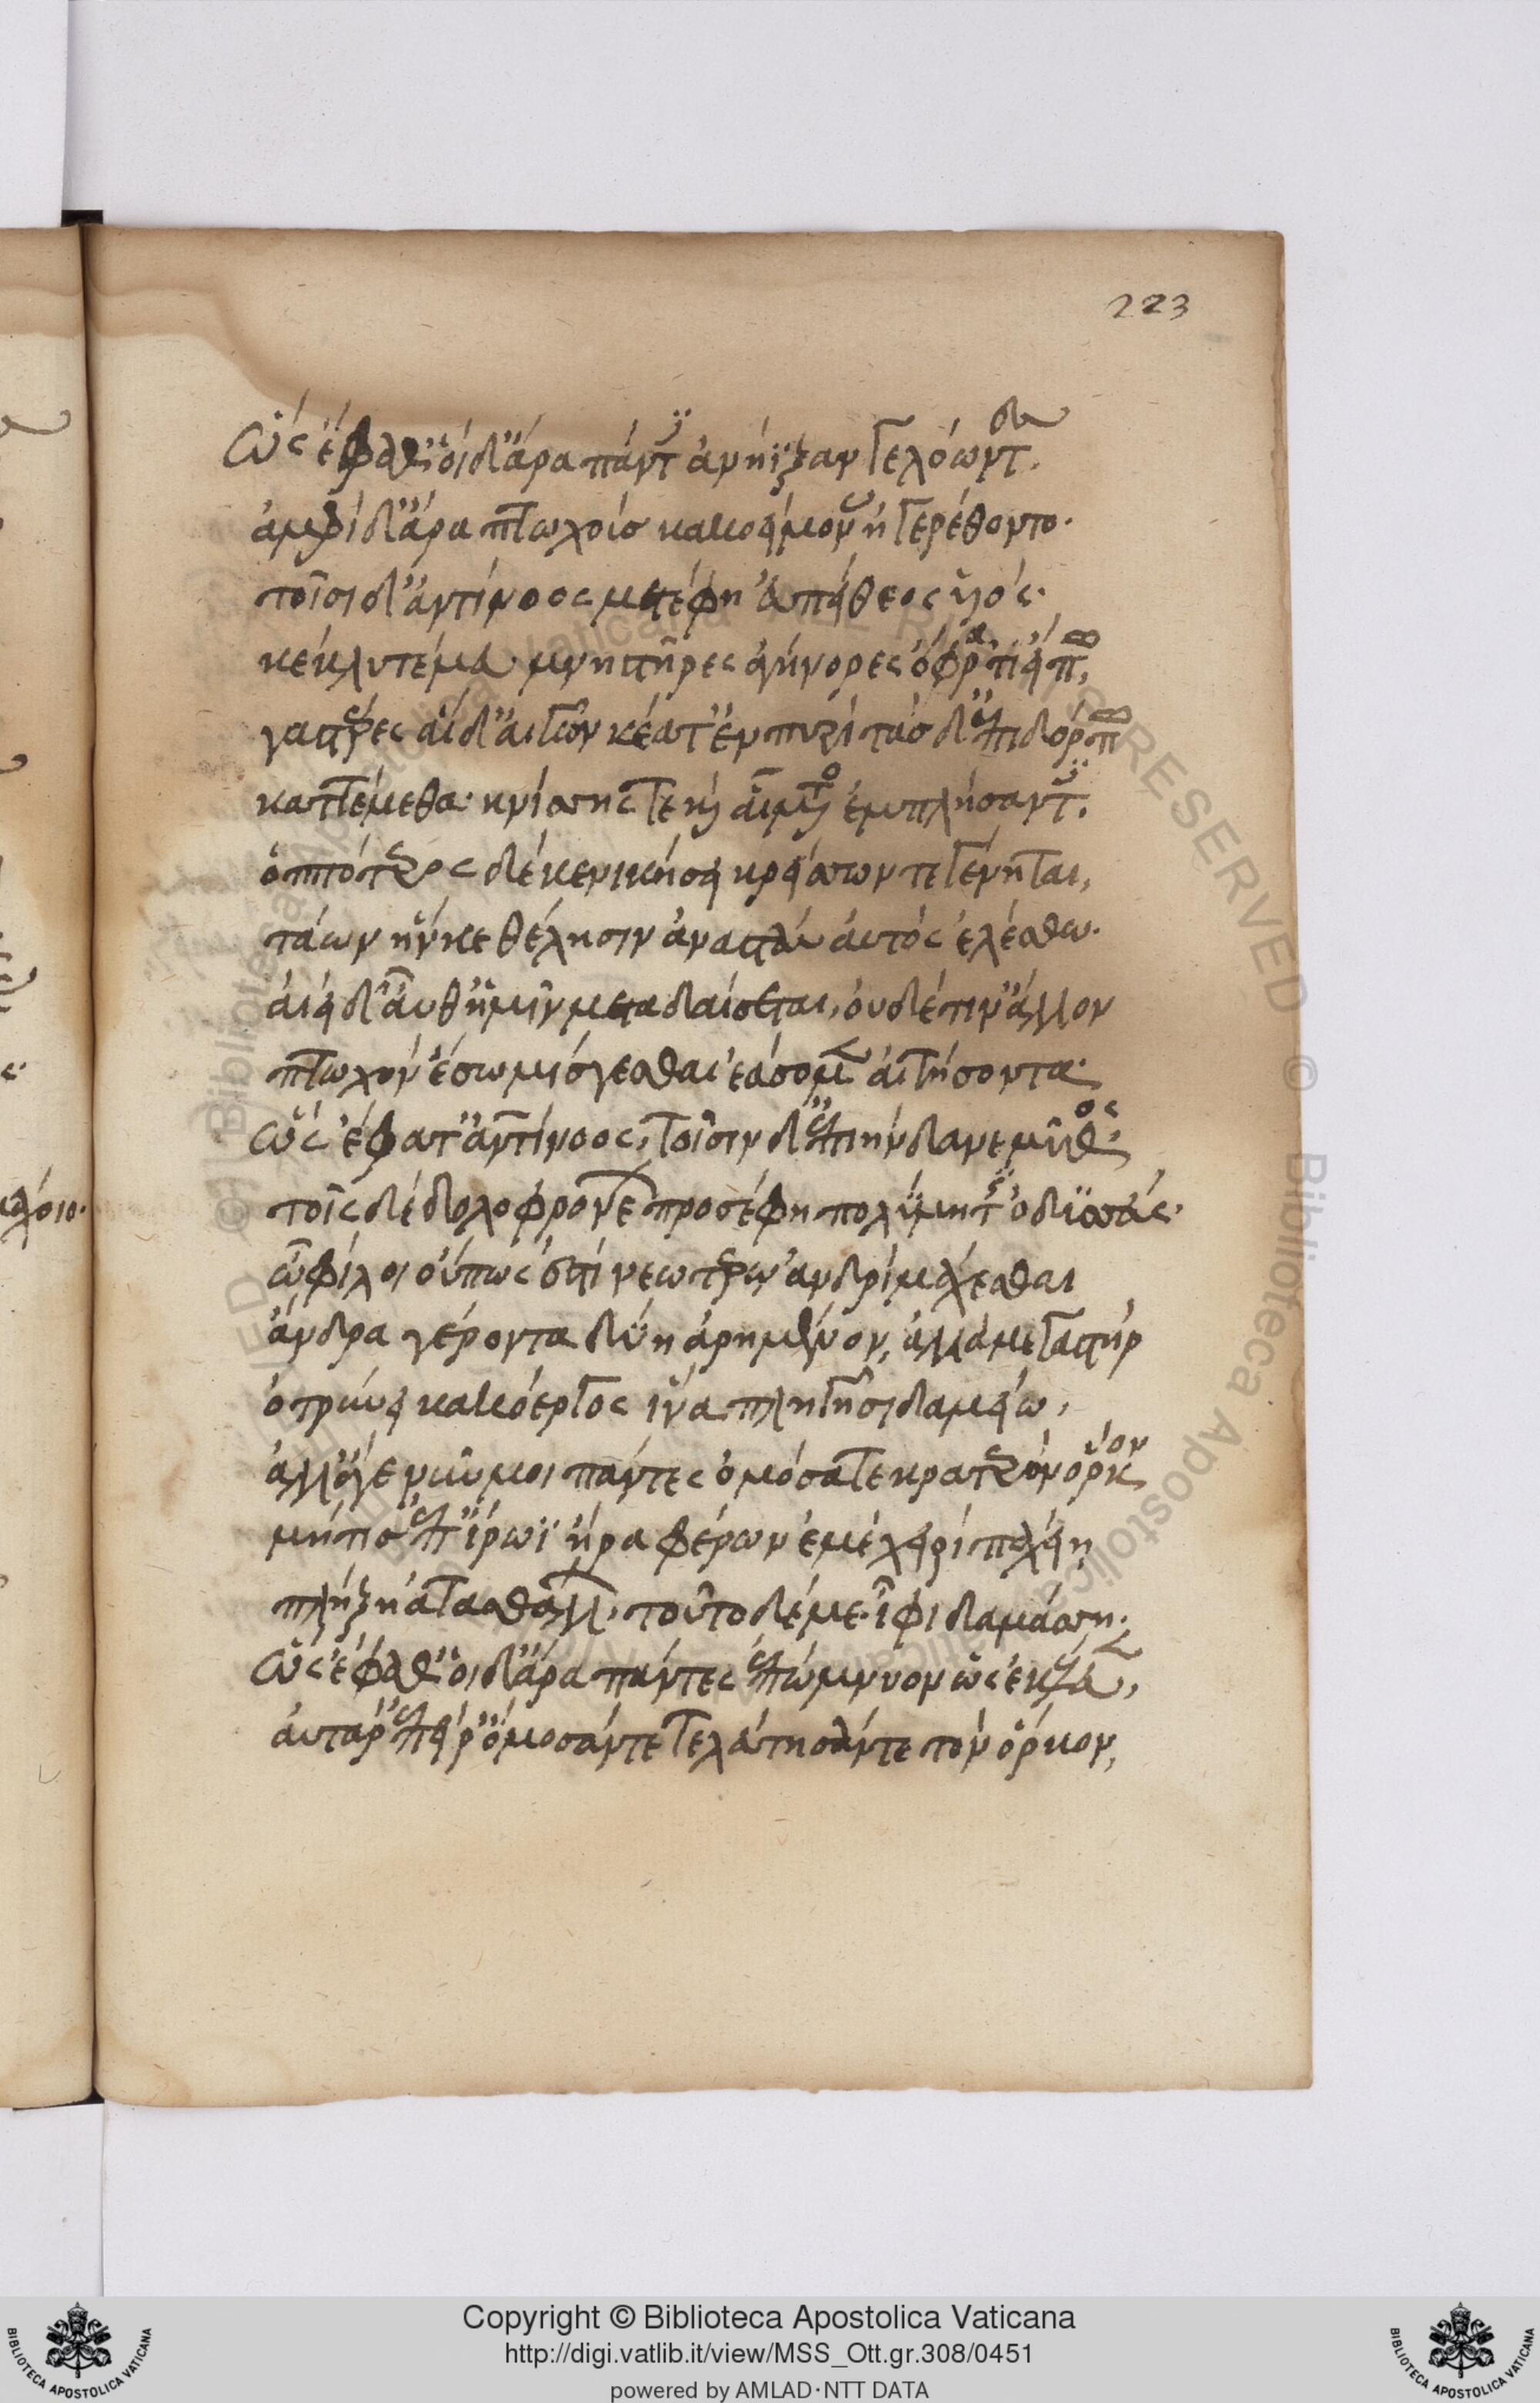 223
ὣς ἔφαθ' οἱ δ' ἄρα πάντες ἀνήϊξαν γελόωντες.
ἀμφὶ δ' ἄρα πτωχοὺς κακοείμονας ἠγερέθοντο.
τοῖσι δ' ἀντίνοος μετέφη εὐπείθεος υἱός.
κέκλυτέ μευ μνηστῆρες ἀγήνορες ὄφρα τι εἴπω,
γαστέρες αἵδ' αἰγῶν κέατ' ἐν πυρὶ τὰς δ' ἐπὶ δόρπω
κατθέμεθα κνίσης τε καὶ αἵματος ἐμπλήσαντες.
ὁππότερος δέ κε νικήσῃ κρείσσων τε γένηται,
τάων ἥν κε θέλησιν ἀναστὰς αὐτὸς ἑλέσθω.
αἰεὶ δ' αὖθ' ἡμῖν μεταδαίσεται, οὐδέ τιν' ἄλλον
πτωχὸν ἔσω μίσγεσθαι ἐάσομεν αἰτήσοντα.
ὣς ἔφατ' ἀντίνοος, τοῖσιν δ' ἐπιήνδανε μῦθος.
τοῖς δὲ δολοφρονέων προσέφη πολύμητις ὀδυσσεύς.
ὦ φίλοι οὔπως ἐστὶ νεωτέρω ἀνδρὶ μάχεσθαι
ἄνδρα γέροντα δύῃ ἀρημένον, ἀλλά με γαστὴρ
ὀτρύνει κακόεργος ἵνα πληγῇσι δαμείω,
ἀλλ' ἄγε νῦν μοι πάντες ὀμόσατε κρατερὸν ὅρκον
μήτις ἐπ' ἴρῳ ἦρα φέρων ἐμὲ χειρὶ παχείῃ
πλήξῃ ἀτασθάλλων, τούτῳ δέ με ἶφι δαμάσσῃ.
ὣς ἔφαθ' οἱ δ' ἄρα πάντες ἐπώμνυον ὡς ἐκέλευεν,
αὐτὰρ ἐπεί ῥ' ὄμοσάν τε τελεύτησάν τε τὸν ὅρκον,
Copyright © Biblioteca Apostolica Vaticana
http://digi.vatlib.it/view/MSS_Ott.gr.308/0451
powered by AMLAD·NTT DATA